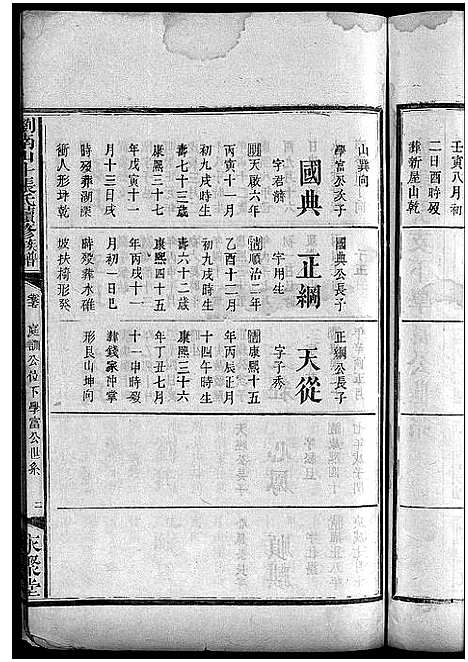 壬寅八月初
二日酉時歿
葬新屋山乾
山巽向
學富公次子
國典
字君濟
明天啟六年
丙寅十一月
初九戌時生
壽七十三歲
康熙三十七
年戊寅十一
月十三日戌
時歿葬湖深
衝人形坤乾
國典公長子
正綱
字用生
清順治二年
乙酉十二月
初九戌時生
壽六十二歲
康熙四十五
年丙戌十一
月初一日巳
時歿葬水碓
坡扶椅形癸
正綱公長子
天從
字子秀
清康熙十五
年丙辰正月
十四午時生
康熙三十六
年丁丑七月
十一申時歿
葬錢家沖掌
形艮山坤向
張氏續修族譜
卷
庭訓公位下學富公世系
二
永聚堂